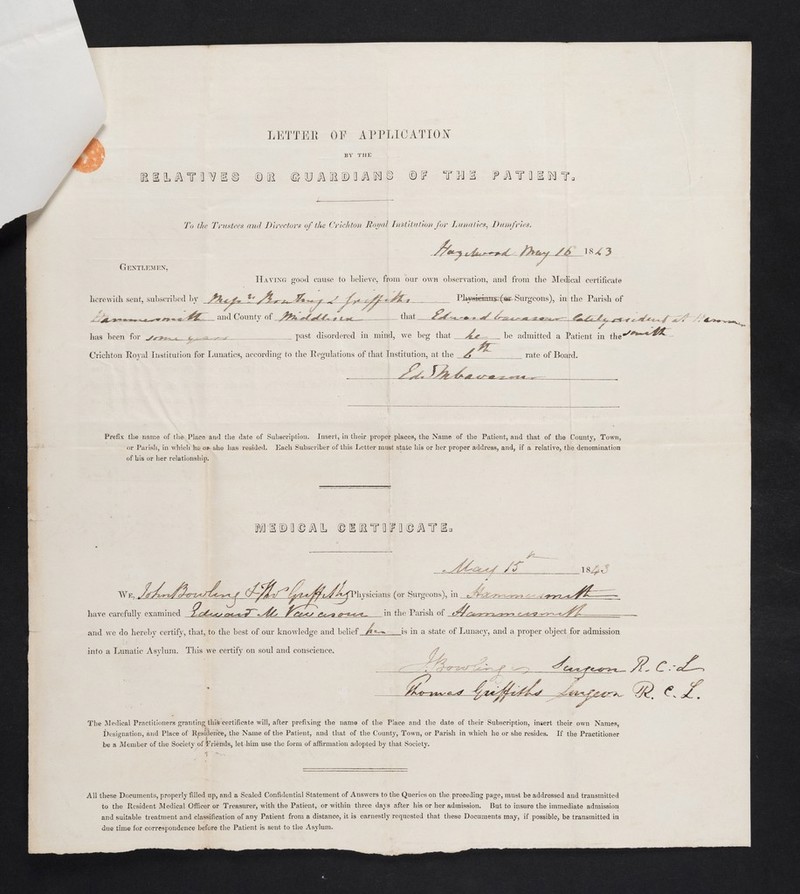 LETTER OF APPLICATION
BY THE
RELATIVES OR GUARDIANS OF THE PATIENT.
To the Trustees and Directors of the Crichton Royal Institution for Lunatics, Dumfries.
Hazelwood May 16 1843
GENTLEMEN,
HAVING good cause to believe, from our own observation, and from the Medical certificate
herewith sent, subscribed by Messrs Bowling & Griffiths Physicians (or Surgeons), in the Parish of
Hammersmith and County of Middlesex that Edward Vavasour lately resident at Hammersmith
has been for some years past disordered in mind, we beg that he be admitted a Patient in the
Crichton Royal Institution for Lunatics, according to the Regulations of that Institution, at the 6th rate of Board.
Edw M Vavasour
Prefix the name of the Place and the date of Subscription. Insert, in their proper places, the Name of the Patient, and that of the County, Town,
or Parish, in which he or she has resided. Each Subscriber of this Letter must state his or her proper address, and, if a relative, the denomination
of his or her relationship.
MEDICAL CERTIFICATE.
May 15th 1843
WE, John Bowling & Thos Griffiths Physicians (or Surgeons), in Hammersmith
have carefully examined Edward M. Vavasour in the Parish of Hammersmith
and we do hereby certify, that, to the best of our knowledge and belief he is in a state of Lunacy, and a proper object for admission
into a Lunatic Asylum. This we certify on soul and conscience.
J Bowling Surgeon R. C. L
Thomas Griffiths Surgeon R. C. L.
The Medical Practitioners granting this certificate will, after prefixing the name of the Place and the date of their Subscription, insert their own Names,
Designation, and Place of Residence, the Name of the Patient, and that of the County, Town, or Parish in which he or she resides. If the Practitioner
be a Member of the Society of Friends, let him use the form of affirmation adopted by that Society.
All these Documents, properly filled up, and a Sealed Confidential Statement of Answers to the Queries on the preceding page, must be addressed and transmitted
to the Resident Medical Officer or Treasurer, with the Patient, or within three days after his or her admission. But to insure the immediate admission
and suitable treatment and classification of any Patient from a distance, it is earnestly requested that these Documents may, if possible, be transmitted in
due time for correspondence before the Patient is sent to the Asylum.